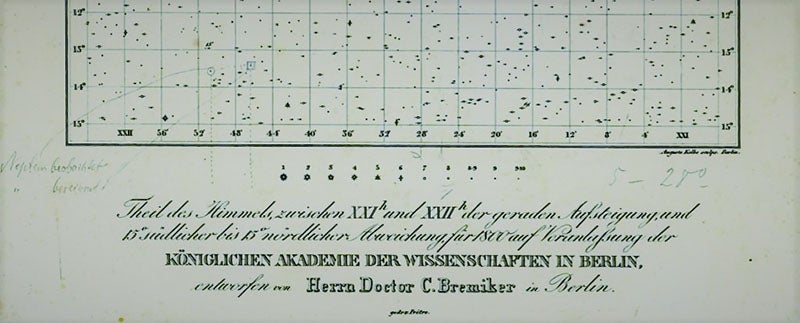 12° 12°
15° 15°
15°
14° 14°
15° 15°
XXII 56' 52' 44' 40' 36' 32' 28' 24' 20' 16' 12' 8' 4' XXI
Auguste Kolbe sculps. Berlin.
1 2 3 4 5 6 7 8 8·9 9 9·10
Neptun beobachtet
" berechnet
5 – 28°
Theil des Himmels, zwischen XXIʰ und XXIIʰ der geraden Aufsteigung, und
15° südlicher bis 15° nördlicher Abweichung, für 1800 auf Veranlaßung der
KÖNIGLICHEN AKADEMIE DER WISSENSCHAFTEN IN BERLIN,
entworfen von Herrn Doctor C. Bremiker in Berlin.
gedr. v. Prêtre.